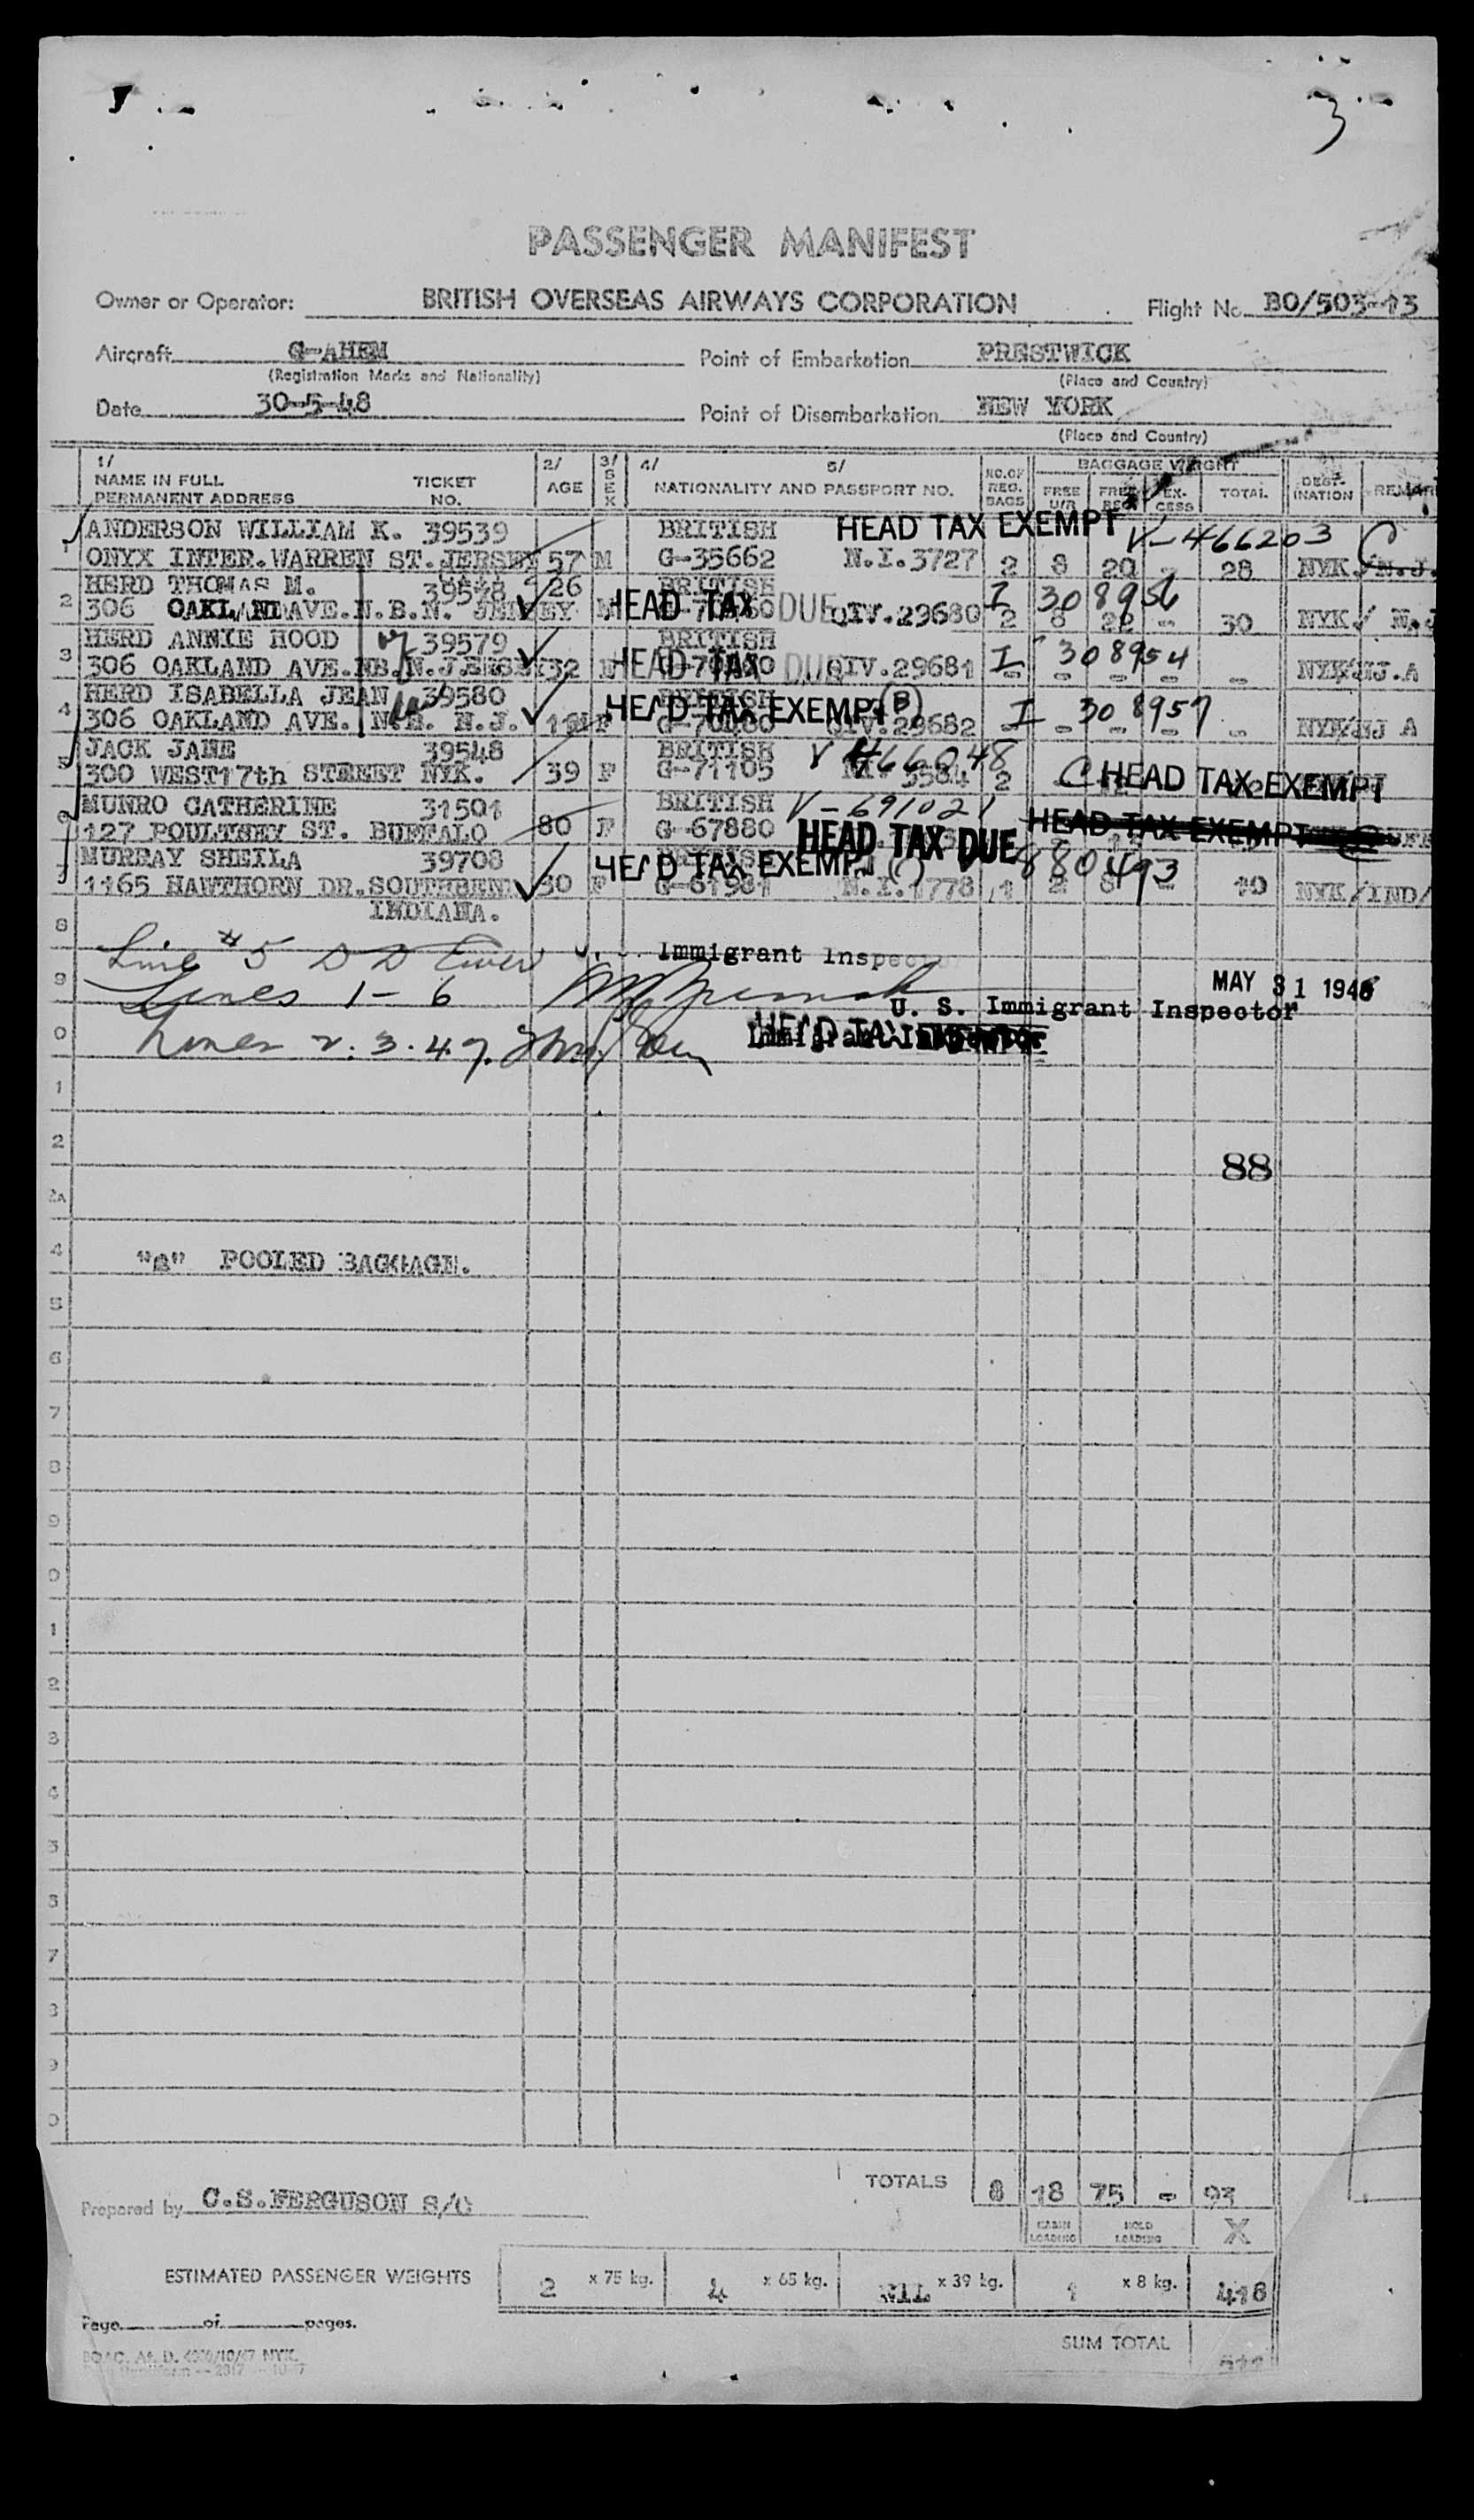 3
PASSENGER MANIFEST
Owner or Operator: BRITISH OVERSEAS AIRWAYS CORPORATION Flight No. BO/503-13
Aircraft G-AHEM Point of Embarkation PRESTWICK
(Registration Marks and Nationality) (Place and Country)
Date 30-5-48 Point of Disembarkation NEW YORK
(Place and Country)
1/ 2/ 3/ 4/ 5/ NO. OF REG. BAGS BAGGAGE WEIGHT DEST-INATION REMAR
NAME IN FULL TICKET AGE SEX NATIONALITY AND PASSPORT NO. FREE U/R FREE REG EX-CESS TOTAL
PERMANENT ADDRESS NO.
ANDERSON WILLIAM K. 39539 BRITISH HEAD TAX EXEMPT V-466203 C
1 ONYX INTER.WARREN ST.JERSEY 57 M G-35662 N.I.3727 2 8 20 - 28 NYK/ N.J.
HERD THOMAS M. 39578 26 BRITISH I 308956
2 306 OAKLAND AVE.N.B.N. JERSEY M HEAD TAX DUE QIV.29680 2 8 22 - 30 NYK/ N.J
HERD ANNIE HOOD 39579 BRITISH I 308954
3 306 OAKLAND AVE.NB.N.JERSEY 32 F HEAD TAX DUE QIV.29681 - - - - - NYK/NJ.A
HERD ISABELLA JEAN 39580 HEAD TAX EXEMPT (B) I 308957
4 306 OAKLAND AVE. N.B. N.J. F QIV.29682 - - - - - NYK/NJ A
JACK JANE 39548 BRITISH V 466048
5 300 WEST17th STREET NYK. 39 F G-71105 2 C HEAD TAX EXEMPT
MUNRO CATHERINE 31501 BRITISH V-691021
127 POULTNEY ST. BUFFALO 80 F G-67880 HEAD TAX DUE HEAD TAX EXEMPT
MURRAY SHEILA 39708 HEAD TAX EXEMPT (C) 880493
1165 HAWTHORN DR.SOUTHBEND 30 F G-61981 N.I.1778 1 2 8 - 10 NYK/IND/
INDIANA.
8
Line #5 D D Immigrant Inspector
9 Lines 1-6 MAY 31 1948
U. S. Immigrant Inspector
0 Lines 2.3.4 7. HEAD TAX
1
2
88
2A
4 "A" POOLED BAGGAGE.
5
6
7
8
9
0
1
2
3
4
5
6
7
8
9
0
TOTALS 8 18 75 - 93
Prepared by C.S.FERGUSON S/O
CABIN LOADING HOLD LOADING X
ESTIMATED PASSENGER WEIGHTS 2 x 75 kg. 4 x 65 kg. NIL x 39 kg. 1 x 8 kg. 418
Page of pages.
SUM TOTAL 511